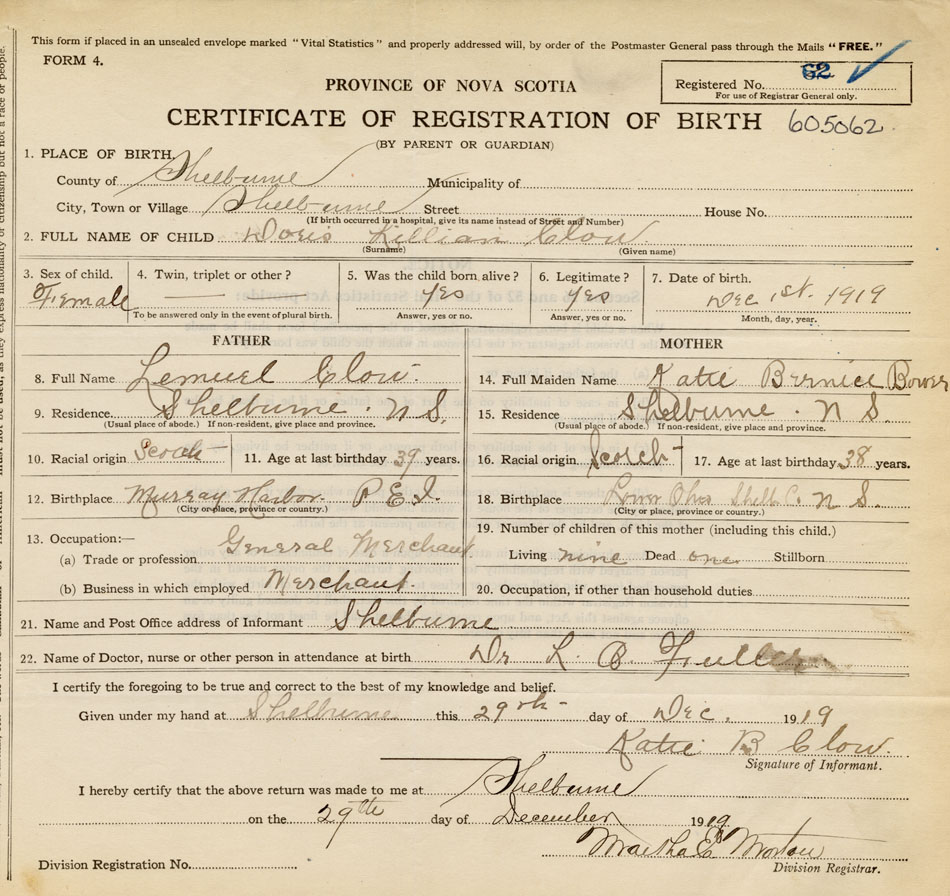 This form if placed in an unsealed envelope marked "Vital Statistics" and properly addressed will, by order of the Postmaster General pass through the Mails "FREE."
FORM 4.
PROVINCE OF NOVA SCOTIA
Registered No. 62
For use of Registrar General only.
CERTIFICATE OF REGISTRATION OF BIRTH 605062
(BY PARENT OR GUARDIAN)
1. PLACE OF BIRTH.
County of Shelburne Municipality of
City, Town or Village Shelburne Street House No.
(If birth occurred in a hospital, give its name instead of Street and Number)
2. FULL NAME OF CHILD Doris Lillian Clow
(Surname) (Given name)
3. Sex of child. 4. Twin, triplet or other? 5. Was the child born alive? 6. Legitimate? 7. Date of birth.
Female yes yes Dec 1st. 1919
To be answered only in the event of plural birth. Answer, yes or no. Answer, yes or no. Month, day, year.
FATHER MOTHER
8. Full Name Lemuel Clow. 14. Full Maiden Name Katie Bernice Bower
9. Residence. Shelburne. N S. 15. Residence Shelburne. N S.
(Usual place of abode.) If non-resident, give place and province. (Usual place of abode.) If non-resident, give place and province.
10. Racial origin Scotch 11. Age at last birthday 39 years. 16. Racial origin Scotch 17. Age at last birthday 38 years.
12. Birthplace Murray Harbor. P E I. 18. Birthplace Lower Ohio Shelb. C. N S.
(City or place, province or country.) (City or place, province or country.)
13. Occupation:— 19. Number of children of this mother (including this child.)
(a) Trade or profession General Merchant. Living nine Dead one. Stillborn
(b) Business in which employed Merchant. 20. Occupation, if other than household duties
21. Name and Post Office address of Informant Shelburne
22. Name of Doctor, nurse or other person in attendance at birth Dr L. B. Fuller
I certify the foregoing to be true and correct to the best of my knowledge and belief.
Given under my hand at Shelburne this 29th day of Dec. 1919
Katie B Clow.
Signature of Informant.
I hereby certify that the above return was made to me at Shelburne
on the 29th day of December 1919
Martha E Morton
Division Registration No. Division Registrar.